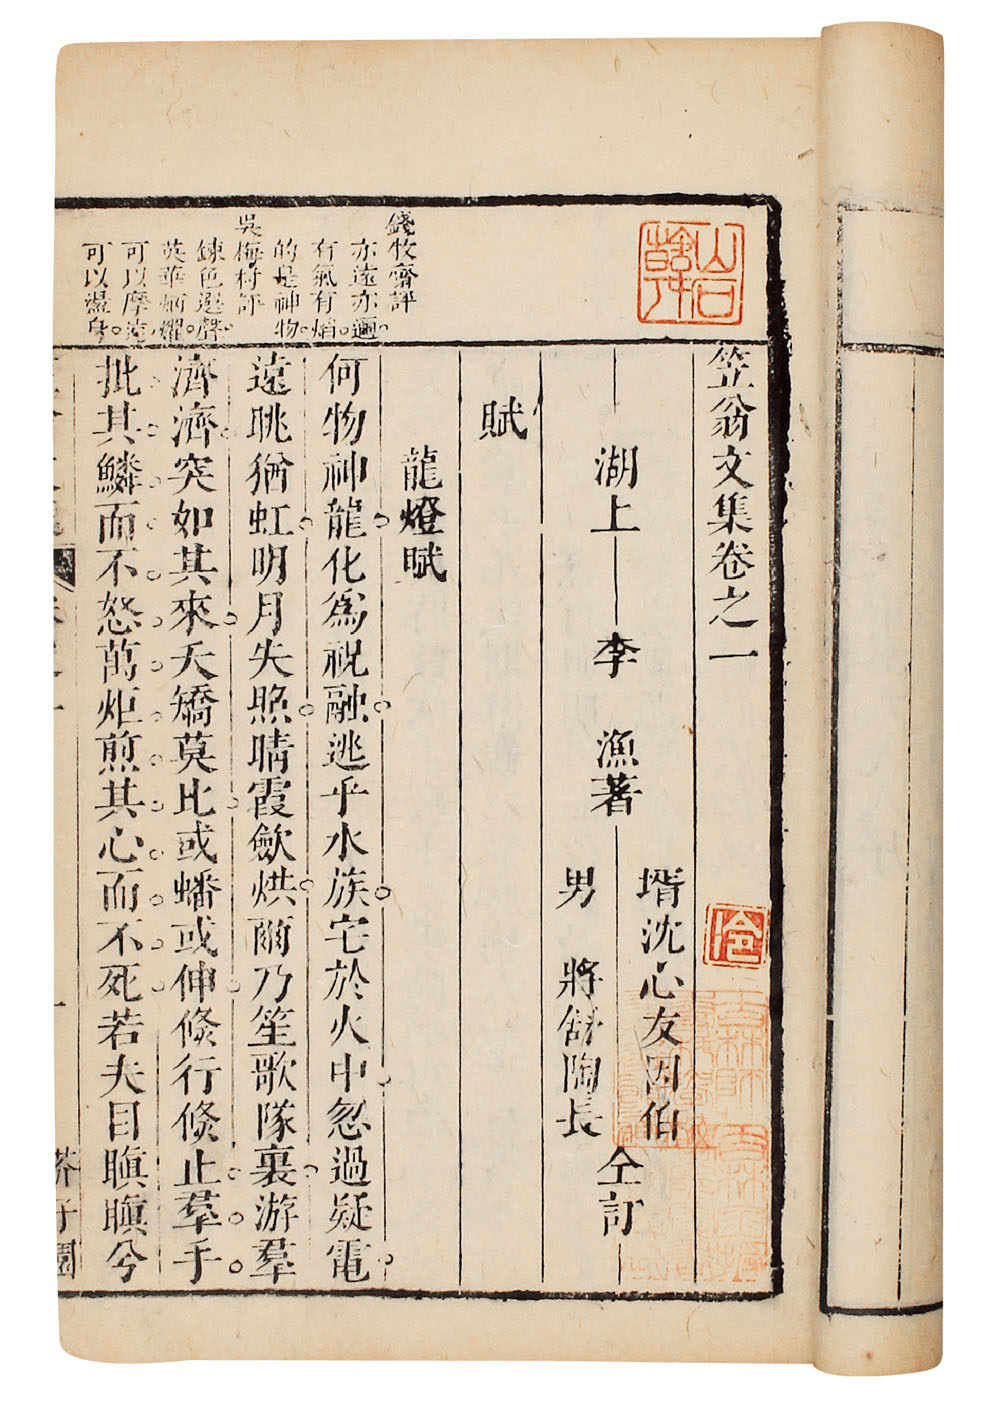 笠翁文集卷之一
湖上 李 漁著
壻沈心友因伯
男 將舒陶長
仝訂
賦
龍燈賦
何物神龍化為祝融逃乎水族宅於火中忽過疑電
遠眺猶虹明月失照晴霞歛烘爾乃笙歌隊裏游羣
濟濟突如其來夭矯莫比或蟠或伸倏行倏止羣手
批其鱗而不怒萬炬煎其心而不死若夫目瞋瞋兮
錢牧齋評
亦遠亦邇
有氣有焰
的是神物
吳梅村評
鍊色選聲
英華炳耀
可以摩空
可以盪身
芥子園